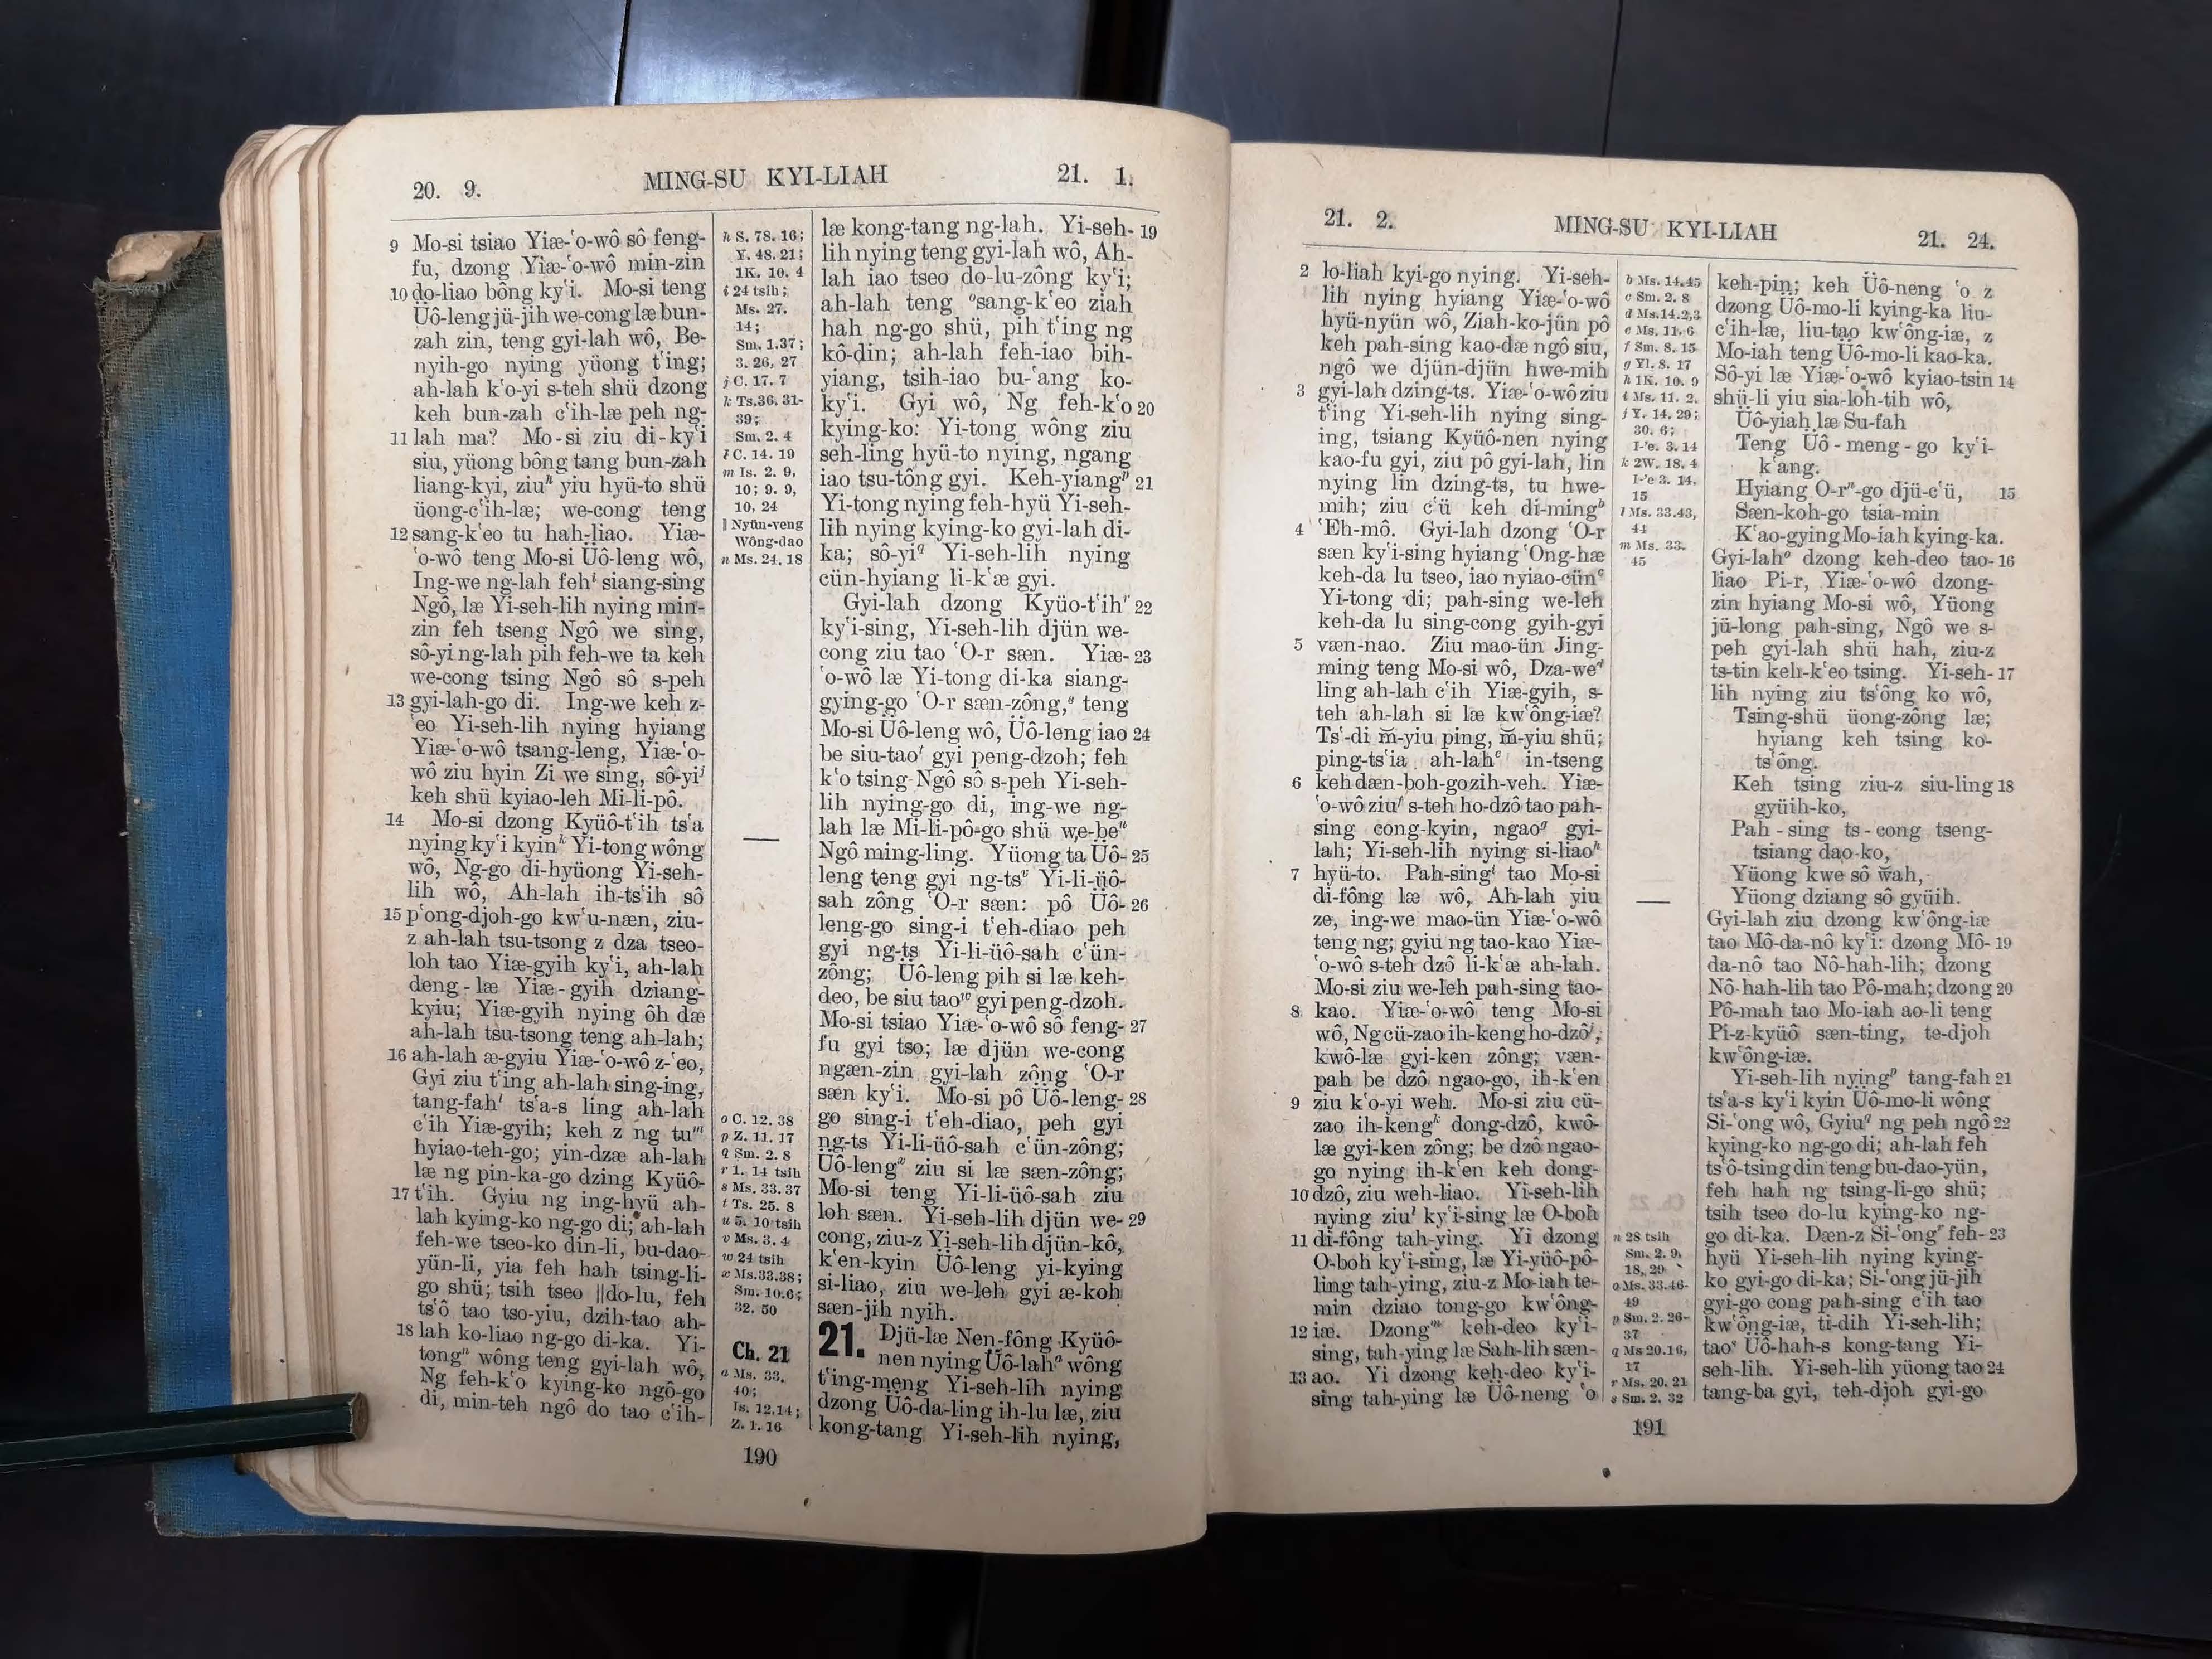 20. 9.
MING-SU KYI-LIAH
21. 1.
9 Mo-si tsiao Yiæ-ʻo-wô sô feng-
fu, dzong Yiæ-ʻo-wô min-zin
10 do-liao bông kyʻi. Mo-si teng
Üô-leng jü-jih we-cong læ bun-
zah zin, teng gyi-lah wô, Be-
nyih-go nying yüong tʻing;
ah-lah kʻo-yi s-teh shü dzong
keh bun-zah cʻih-læ peh ng-
11 lah ma? Mo-si ziu di-kyʻi
siu, yüong bông tang bun-zah
liang-kyi, ziuʰ yiu hyü-to shü
üong-cʻih-læ; we-cong teng
12 sang-kʻeo tu hah-liao. Yiæ-
ʻo-wô teng Mo-si Üô-leng wô,
Ing-we ng-lah fehⁱ siang-sing
Ngô, læ Yi-seh-lih nying min-
zin feh tseng Ngô we sing,
sô-yi ng-lah pih feh-we ta keh
we-cong tsing Ngô sô s-peh
13 gyi-lah-go di. Ing-we keh z-
ʻeo Yi-seh-lih nying hyiang
Yiæ-ʻo-wô tsang-leng, Yiæ-ʻo-
wô ziu hyin Zi we sing, sô-yiʲ
keh shü kyiao-leh Mi-li-pô.
14 Mo-si dzong Kyüô-tʻih tsʻa
nying kyʻi kyinᵏ Yi-tong wông
wô, Ng-go di-hyüong Yi-seh-
lih wô, Ah-lah ih-tsʻih sô
15 pʻong-djoh-go kwʻu-næn, ziu-
z ah-lah tsu-tsong z dza tseo-
loh tao Yiæ-gyih kyʻi, ah-lah
deng-læ Yiæ-gyih dziang-
kyiu; Yiæ-gyih nying ôh dæ
ah-lah tsu-tsong teng ah-lah;
16 ah-lah æ-gyiu Yiæ-ʻo-wô z-ʻeo,
Gyi ziu tʻing ah-lah sing-ing,
tang-fahˡ tsʻa-s ling ah-lah
cʻih Yiæ-gyih; keh z ng tuᵐ
hyiao-teh-go; yin-dzæ ah-lah
læ ng pin-ka-go dzing Kyüô-
17 tʻih. Gyiu ng ing-hyü ah-
lah kying-ko ng-go di; ah-lah
feh-we tseo-ko din-li, bu-dao-
yün-li, yia feh hah tsing-li-
go shü; tsih tseo ‖do-lu, feh
tsʻô tao tso-yiu, dzih-tao ah-
18 lah ko-liao ng-go di-ka. Yi-
tongⁿ wông teng gyi-lah wô,
Ng feh-kʻo kying-ko ngô-go
di, min-teh ngô do tao cʻih-
h S. 78. 16;
Y. 48. 21;
1K. 10. 4
i 24 tsih;
Ms. 27.
14;
Sm. 1.37;
3. 26, 27
j C. 17. 7
k Ts.36. 31-
39;
Sm. 2. 4
l C. 14. 19
m Is. 2. 9,
10; 9. 9,
10, 24
‖ Nyün-veng
Wông-dao
n Ms. 24. 18
o C. 12. 38
p Z. 11. 17
q Sm. 2. 8
r 1. 14 tsih
s Ms. 33. 37
t Ts. 25. 8
u 5. 10 tsih
v Ms. 3. 4
w 24 tsih
x Ms.33.38;
Sm. 10.6;
32. 50
Ch. 21
a Ms. 33.
40;
Is. 12.14;
Z. 1. 16
læ kong-tang ng-lah. Yi-seh- 19
lih nying teng gyi-lah wô, Ah-
lah iao tseo do-lu-zông kyʻi;
ah-lah teng ᵒsang-kʻeo ziah
hah ng-go shü, pih tʻing ng
kô-din; ah-lah feh-iao bih-
yiang, tsih-iao bu-ʻang ko-
kyʻi. Gyi wô, Ng feh-kʻo 20
kying-ko: Yi-tong wông ziu
seh-ling hyü-to nying, ngang
iao tsu-tông gyi. Keh-yiangᵖ 21
Yi-tong nying feh-hyü Yi-seh-
lih nying kying-ko gyi-lah di-
ka; sô-yi𐞥 Yi-seh-lih nying
cün-hyiang li-kʻæ gyi.
Gyi-lah dzong Kyüo-tʻihʳ 22
kyʻi-sing, Yi-seh-lih djün we-
cong ziu tao ʻO-r sæn. Yiæ- 23
ʻo-wô læ Yi-tong di-ka siang-
gying-go ʻO-r sæn-zông,ˢ teng
Mo-si Üô-leng wô, Üô-leng iao 24
be siu-taoᵗ gyi peng-dzoh; feh
kʻo tsing Ngô sô s-peh Yi-seh-
lih nying-go di, ing-we ng-
lah læ Mi-li-pô-go shü we-beᵘ
Ngô ming-ling. Yüong ta Üô- 25
leng teng gyi ng-tsᵛ Yi-li-üô-
sah zông ʻO-r sæn: pô Üô- 26
leng-go sing-i tʻeh-diao peh
gyi ng-ts Yi-li-üô-sah cʻün-
zông; Üô-leng pih si læ keh-
deo, be siu taoʷ gyi peng-dzoh.
Mo-si tsiao Yiæ-ʻo-wô sô feng- 27
fu gyi tso; læ djün we-cong
ngæn-zin gyi-lah zông ʻO-r
sæn kyʻi. Mo-si pô Üô-leng- 28
go sing-i tʻeh-diao, peh gyi
ng-ts Yi-li-üô-sah cʻün-zông;
Üô-lengˣ ziu si læ sæn-zông;
Mo-si teng Yi-li-üô-sah ziu
loh sæn. Yi-seh-lih djün we- 29
cong, ziu-z Yi-seh-lih djün-kô,
kʻen-kyin Üô-leng yi-kying
si-liao, ziu we-leh gyi æ-koh
sæn-jih nyih.
21. Djü-læ Nen-fông Kyüô-
nen nying Üô-lahᵃ wông
tʻing-meng Yi-seh-lih nying
dzong Üô-da-ling ih-lu læ, ziu
kong-tang Yi-seh-lih nying,
190
21. 2.
MING-SU KYI-LIAH
21. 24.
2 lo-liah kyi-go nying. Yi-seh-
lih nying hyiang Yiæ-ʻo-wô
hyü-nyün wô, Ziah-ko-jün pô
keh pah-sing kao-dæ ngô siu,
ngô we djün-djün hwe-mih
3 gyi-lah dzing-ts. Yiæ-ʻo-wô ziu
tʻing Yi-seh-lih nying sing-
ing, tsiang Kyüô-nen nying
kao-fu gyi, ziu pô gyi-lah, lin
nying lin dzing-ts, tu hwe-
mih; ziu cʻü keh di-mingᵇ
4 ʻEh-mô. Gyi-lah dzong ʻO-r
sæn kyʻi-sing hyiang ʻOng-hæ
keh-da lu tseo, iao nyiao-cünᶜ
Yi-tong di; pah-sing we-leh
keh-da lu sing-cong gyih-gyi
5 væn-nao. Ziu mao-ün Jing-
ming teng Mo-si wô, Dza-weᵈ
ling ah-lah cʻih Yiæ-gyih, s-
teh ah-lah si læ kwʻông-iæ?
Tsʻ-di m̄-yiu ping, m̄-yiu shü;
ping-tsʻia ah-lahᵉ in-tseng
6 keh dæn-boh-go zih-veh. Yiæ-
ʻo-wô ziuᶠ s-teh ho-dzô tao pah-
sing cong-kyin, ngaoᵍ gyi-
lah; Yi-seh-lih nying si-liaoʰ
7 hyü-to. Pah-singⁱ tao Mo-si
di-fông læ wô, Ah-lah yiu
ze, ing-we mao-ün Yiæ-ʻo-wô
teng ng; gyiu ng tao-kao Yiæ-
ʻo-wô s-teh dzô li-kʻæ ah-lah.
Mo-si ziu we-leh pah-sing tao-
8 kao. Yiæ-ʻo-wô teng Mo-si
wô, Ng cü-zao ih-keng ho-dzôʲ,
kwô-læ gyi-ken zông; væn-
pah be dzô ngao-go, ih-kʻen
9 ziu kʻo-yi weh. Mo-si ziu cü-
zao ih-kengᵏ dong-dzô, kwô-
læ gyi-ken zông; be dzô ngao-
go nying ih-kʻen keh dong-
10 dzô, ziu weh-liao. Yi-seh-lih
nying ziuˡ kyʻi-sing læ O-boh
11 di-fông tah-ying. Yi dzong
O-boh kyʻi-sing, læ Yi-yüô-pô-
ling tah-ying, ziu-z Mo-iah te-
min dziao tong-go kwʻông-
12 iæ. Dzongᵐ keh-deo kyʻi-
sing, tah-ying læ Sah-lih sæn-
13 ao. Yi dzong keh-deo kyʻi-
sing tah-ying læ Üô-neng ʻo
b Ms. 14.45
c Sm. 2. 8
d Ms.14.2,3
e Ms. 11. 6
f Sm. 8. 15
g Yl. 8. 17
h 1K. 10. 9
i Ms. 11. 2.
j Y. 14. 29;
30. 6;
I-ʻe. 3. 14
k 2W. 18. 4
I-ʻe 3. 14,
15
l Ms. 33.43,
44
m Ms. 33.
45
n 28 tsih
Sm. 2. 9,
18, 29
o Ms. 33.46-
49
p Sm. 2. 26-
37
q Ms 20.16,
17
r Ms. 20. 21
s Sm. 2. 32
keh-pin; keh Üô-neng ʻo z
dzong Üô-mo-li kying-ka liu-
cʻih-læ, liu-tao kwʻông-iæ, z
Mo-iah teng Üô-mo-li kao-ka.
Sô-yi læ Yiæ-ʻo-wô kyiao-tsin 14
shü-li yiu sia-loh-tih wô,
Üô-yiah læ Su-fah
Teng Üô-meng-go kyʻi-
kʻang.
Hyiang O-rⁿ-go djü-cʻü, 15
Sæn-koh-go tsia-min
Kʻao-gying Mo-iah kying-ka.
Gyi-lahᵒ dzong keh-deo tao- 16
liao Pi-r, Yiæ-ʻo-wô dzong-
zin hyiang Mo-si wô, Yüong
jü-long pah-sing, Ngô we s-
peh gyi-lah shü hah, ziu-z
ts-tin keh-kʻeo tsing. Yi-seh- 17
lih nying ziu tsʻông ko wô,
Tsing-shü üong-zông læ;
hyiang keh tsing ko-
tsʻông.
Keh tsing ziu-z siu-ling 18
gyüih-ko,
Pah-sing ts-cong tseng-
tsiang dao-ko,
Yüong kwe sô wah,
Yüong dziang sô gyüih.
Gyi-lah ziu dzong kwʻông-iæ
tao Mô-da-nô kyʻi: dzong Mô- 19
da-nô tao Nô-hah-lih; dzong
Nô-hah-lih tao Pô-mah; dzong 20
Pô-mah tao Mo-iah ao-li teng
Pi-z-kyüô sæn-ting, te-djoh
kwʻông-iæ.
Yi-seh-lih nyingᵖ tang-fah 21
tsʻa-s kyʻi kyin Üô-mo-li wông
Si-ʻong wô, Gyiu𐞥 ng peh ngô 22
kying-ko ng-go di; ah-lah feh
tsʻô-tsing din teng bu-dao-yün,
feh hah ng tsing-li-go shü;
tsih tseo do-lu kying-ko ng-
go di-ka. Dæn-z Si-ʻongʳ feh- 23
hyü Yi-seh-lih nying kying-
ko gyi-go di-ka; Si-ʻong jü-jih
gyi-go cong pah-sing cʻih tao
kwʻông-iæ, ti-dih Yi-seh-lih;
taoˢ Üô-hah-s kong-tang Yi-
seh-lih. Yi-seh-lih yüong tao 24
tang-ba gyi, teh-djoh gyi-go
191